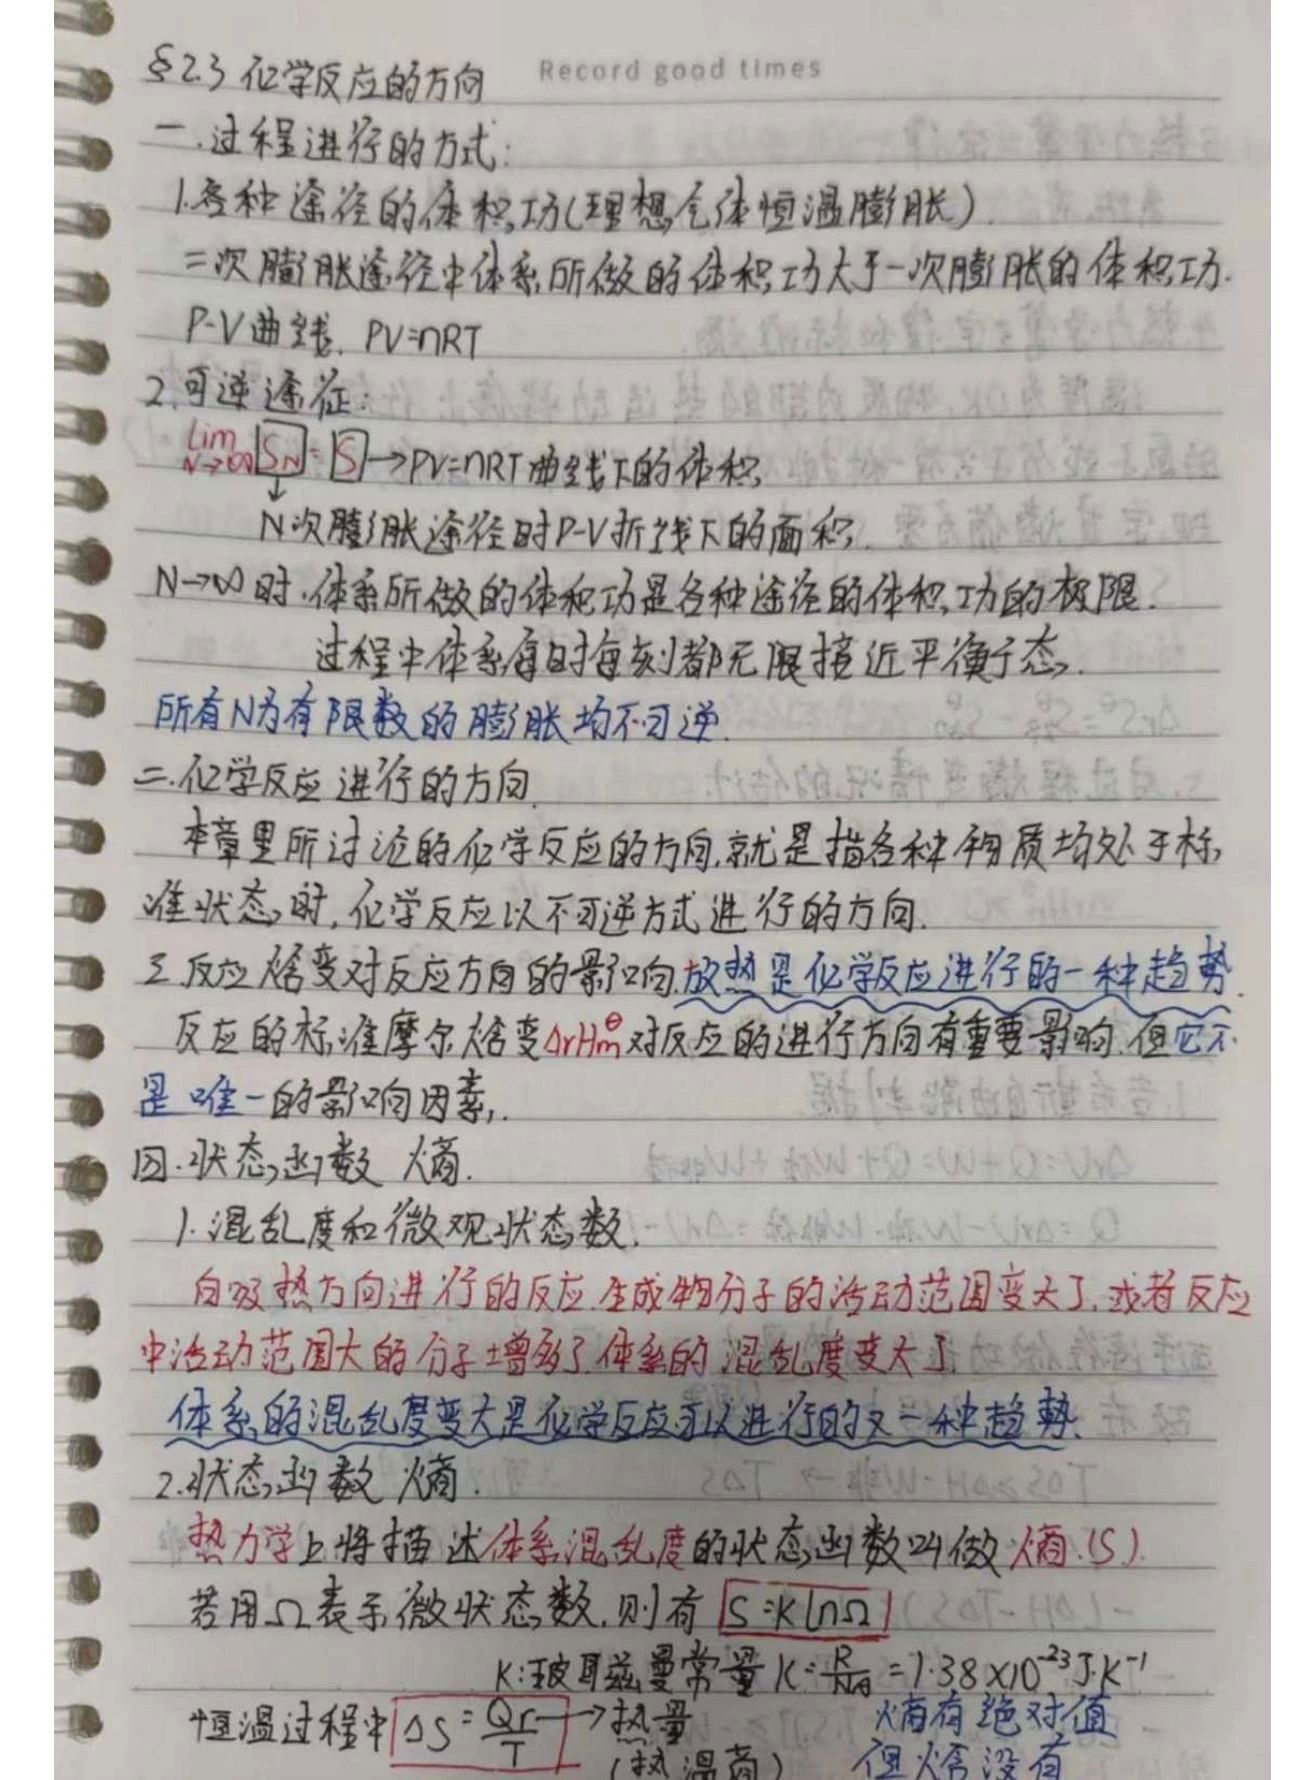 §2.3 化学反应的方向
Record good times
一.过程进行的方式:
1.各种途径的体积功(理想气体恒温膨胀).
二次膨胀途径中体系所做的体积功大于一次膨胀的体积功.
P-V曲线. PV=nRT
2.可逆途径:
lim N→∞ SN = S →PV=nRT曲线下的体积
↓
N次膨胀途径时P-V折线下的面积.
N→∞时.体系所做的体积功是各种途径的体积功的极限.
过程中体系每时每刻都无限接近平衡态.
所有N为有限数的膨胀均不可逆.
二.化学反应进行的方向.
本章里所讨论的化学反应的方向.就是指各种物质均处于标
准状态时,化学反应以不可逆方式进行的方向.
三.反应焓变对反应方向的影响.放热是化学反应进行的一种趋势.
反应的标准摩尔焓变ΔrHm^θ对反应的进行方向有重要影响.但它不
是唯一的影响因素.
四.状态函数 熵.
1.混乱度和微观状态数.
向吸热方向进行的反应.生成物分子的活动范围变大了.或者反应
中活动范围大的分子增多了.体系的混乱度变大了
体系的混乱度变大是化学反应可以进行的又一种趋势.
2.状态函数 熵.
热力学上将描述体系混乱度的状态函数叫做熵.(S).
若用Ω表示微状态数.则有 S=KlnΩ
K:玻耳兹曼常量 K=R/NA=1.38×10^-23 J·K^-1
恒温过程中 ΔS=Qr/T →热量 熵有绝对值
(热温商) 但焓没有